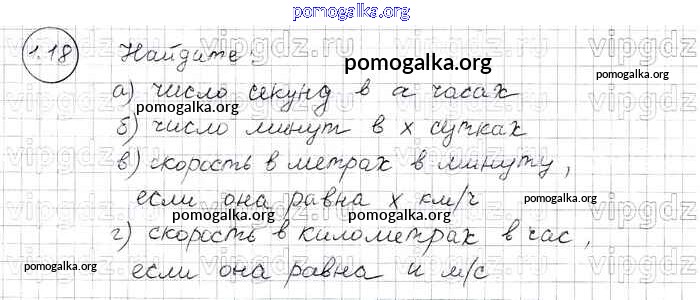 pomogalka.org
1.18 Найдите:
pomogalka.org
а) число секунд в а часах
pomogalka.org
б) число минут в х сутках
в) скорость в метрах в минуту,
если она равна х км/ч
pomogalka.org
pomogalka.org
г) скорость в километрах в час,
pomogalka.org
если она равна и м/с
pomogalka.org